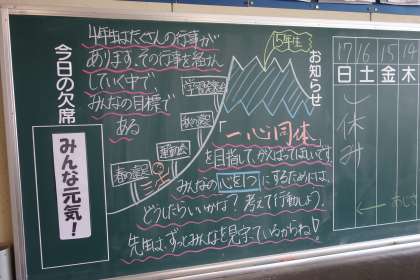 4年生はたくさんの行事が
あります。その行事を経験
していく中で、
みんなの目標で
ある
5年生
学習発表会
運動会
お知らせ
「一心同体」
を目指して、がんばってほしいです。
みんなの心を1つにするためには、
どうしたらいいかな？考えて行動しよう。
先生は、ずっとみんなを見守っているからね！
今日の欠席
みんな元気！
17 16 15 14
日 土 金 木
休み